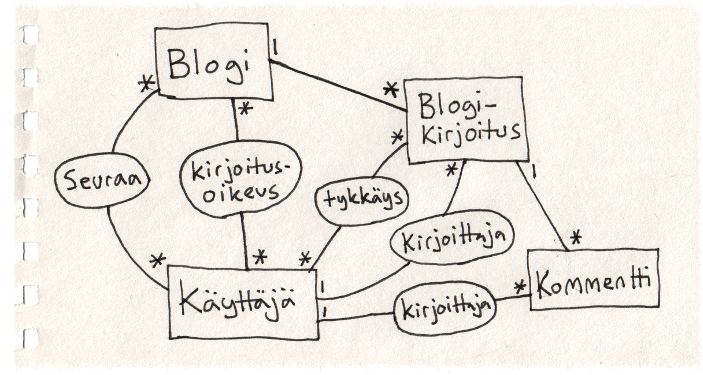 Blogi
1
*
*
*
Blogi-
Kirjoitus
*
*
1
Seuraa
kirjoitus-
oikeus
tykkäys
Kirjoittaja
*
*
*
*
Käyttäjä
1
1
kirjoittaja
*
Kommentti